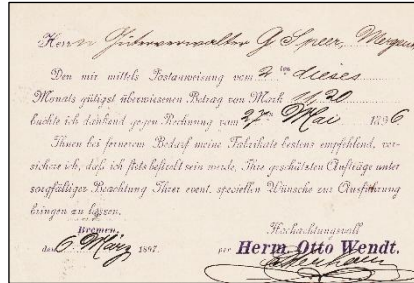 Herrn Güterverwalter G Speer, Mergen
Den mir mittels Postanweisung vom 2ten dieses
Monats gütigst überwiesenen Betrag von Mark 11,20
buchte ich dankend gegen Rechnung vom 27ten Mai 1896
Ihnen bei fernerem Bedarf meine Fabrikate bestens empfehlend, ver-
sichere ich, daß ich stets bestrebt sein werde, Ihre geschätzten Aufträge unter
sorgfältiger Beachtung Ihrer event. speciellen Wünsche zur Ausführung
bringen zu lassen.
Bremen,
den 6. März 1897.
Hochachtungsvoll
per Herm. Otto Wendt.